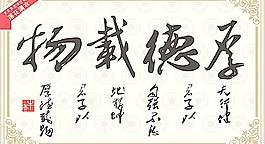 厚德載物
天行健
君子以
自强不息
地勢坤
君子以
厚德載物